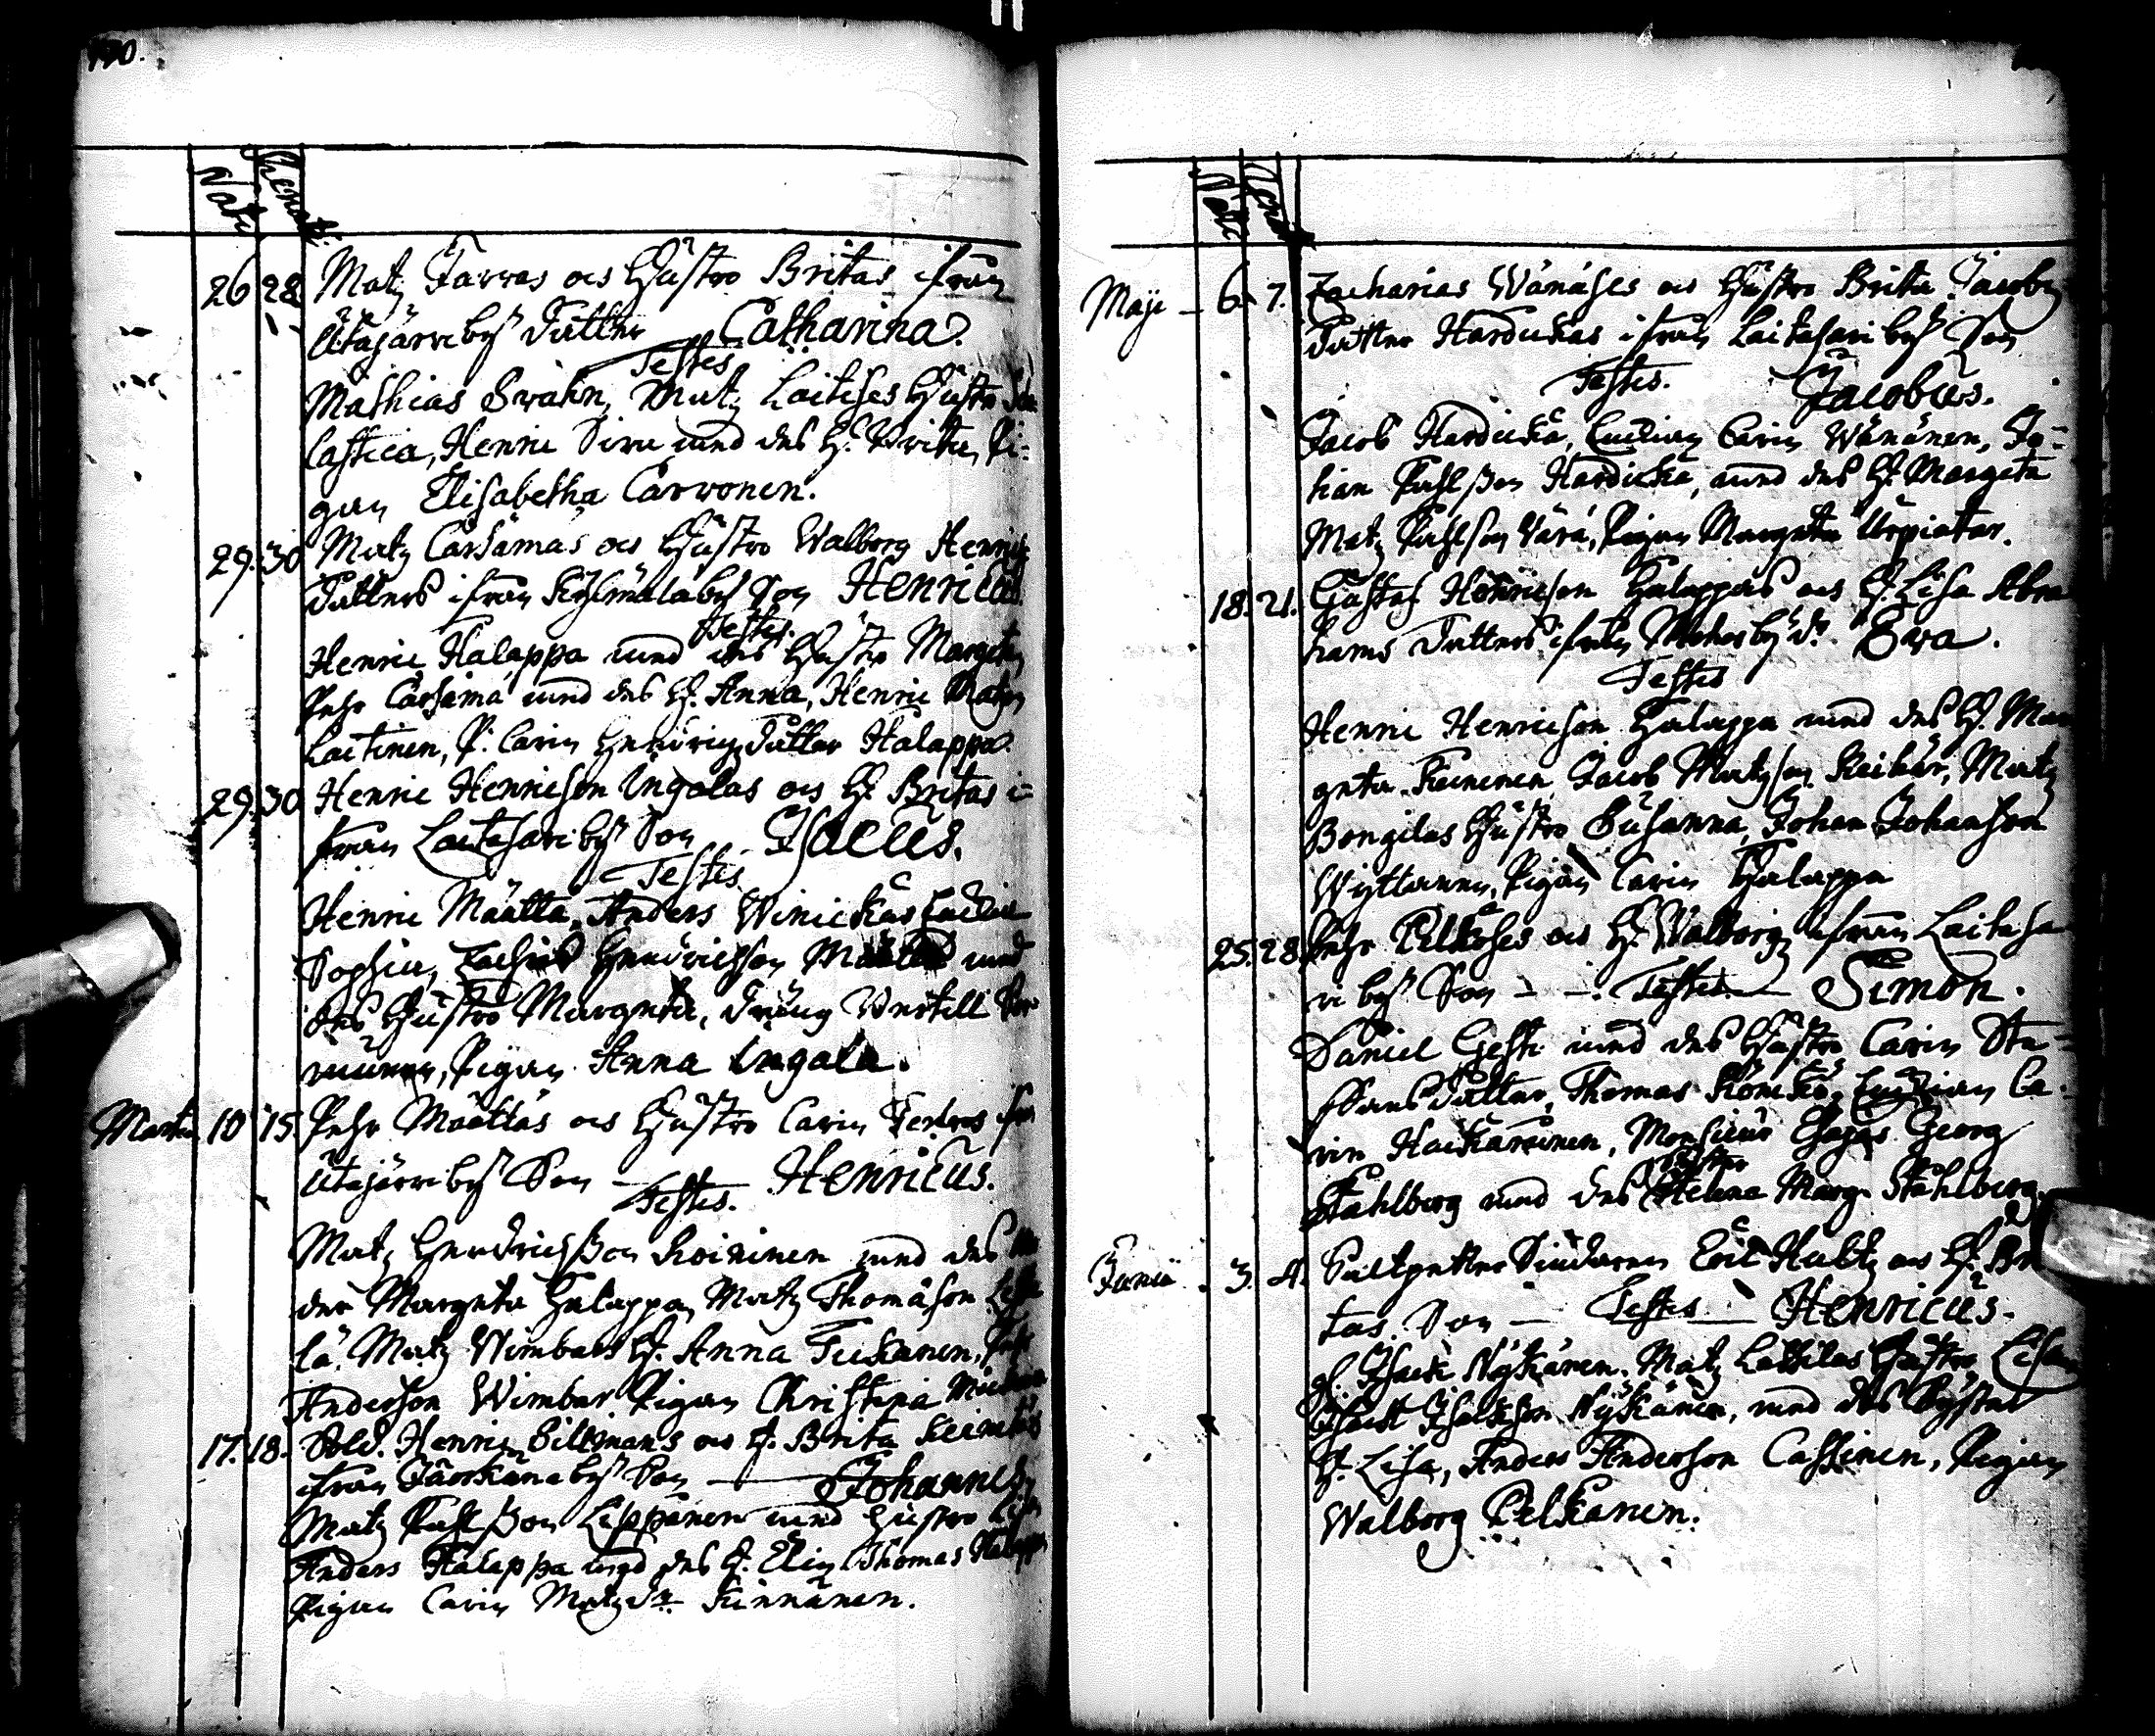 190.
Nati Renati
26 28 Matz Tarras och Hustro Britas ifrån
Utajärvi by Dotter Catharina.
Testes
Mathias Svahn, Matz Laitises Hustro
lastica, Henric Siru med des H. Brita, Pi-
gan Elisabetha Carvonen.
29. 30 Matz Carsämäs och Hustro Walborg Henrichs
Dotters ifrån Kylmälä by Son Henricus.
Testes.
Henric Halappa med des Hustro Margeta,
Pehr Carsämä med des H. Anna, Henric Matz
Laitinen, P. Carin Hendrichz Dotter Halappa.
29. 30 Henric Henricson Ingalas och H. Britas i-
från Laitasari by Son Isacus.
Testes
Henric Määtta, Anders Winickas
Sophia, Hendrichson med
des Hustro Margreta, Dräng Bertell
Pigan Anna Ingala.
Martii 10 15 Pehr Määttäs och Hustro Carin
Utajärvi by Son Henricus.
Testes.
Matz Hendrichsson Koivinen med des
der Margreta Halappa, Matz Thomåson
lä. Matz Wimbars H. Anna Tuckanen,
Anderson Wimbar Pigan Christina
17. 18. Sold. Henric Biltmans och H. Brita
ifrån by Son Johannes
Matz Pahlsson Lippanen med Hustro Lisa
Anders Halappa med des H. Elin Thomas Halappa
Pigan Carin Matz Dr. Kinnänen.
Nati Renati
Maji 6. 7. Zacharias Wänäses och Hustro Brita Jacobz
Dotter Hardickas ifrån Laitasari by Son
Testes. Jacobus.
Jacob Hardicka, Enkian Carin Wänänen, Jo-
han Pahlsson Hardicka, med des H. Margeta
Matz Pahlson Vära, Pigan Margreta Urpiatar.
18. 21. Gustaf Henricson Halappas och H. Lisa Abra
hams Dotters ifrån by Dr. Eva.
Testes
Henric Henricson Halappa med des H. Mar
greta Keinenen, Jacob Matzson Matz
Bongilas Hustro Susanna, Johan Johanson
Pigan Carin Halappa
25. 28. Pehr Pelkoses och H. Walborg ifrån Laitasa
ri by Son Testes. Simon.
Daniel Gesti med des Hustro Carin Sta-
phans Dotter, Thomas Enkian Ca-
rin Monsieur Esajas Georg
Ståhlberg med des Syster Helena Marg. Ståhlberg.
Junii 3. 4. Saltpetter Siudaren Eric Haltz och H. Bri
tas Son Testes Henricus.
gl. Isack Nykänen. Matz Lassilas Hustro Lisa
Isack Isackson Nykänen, med des Syster
H. Lisa, Anders Anderson Cassinen, Pigan
Walborg Pelkanen.